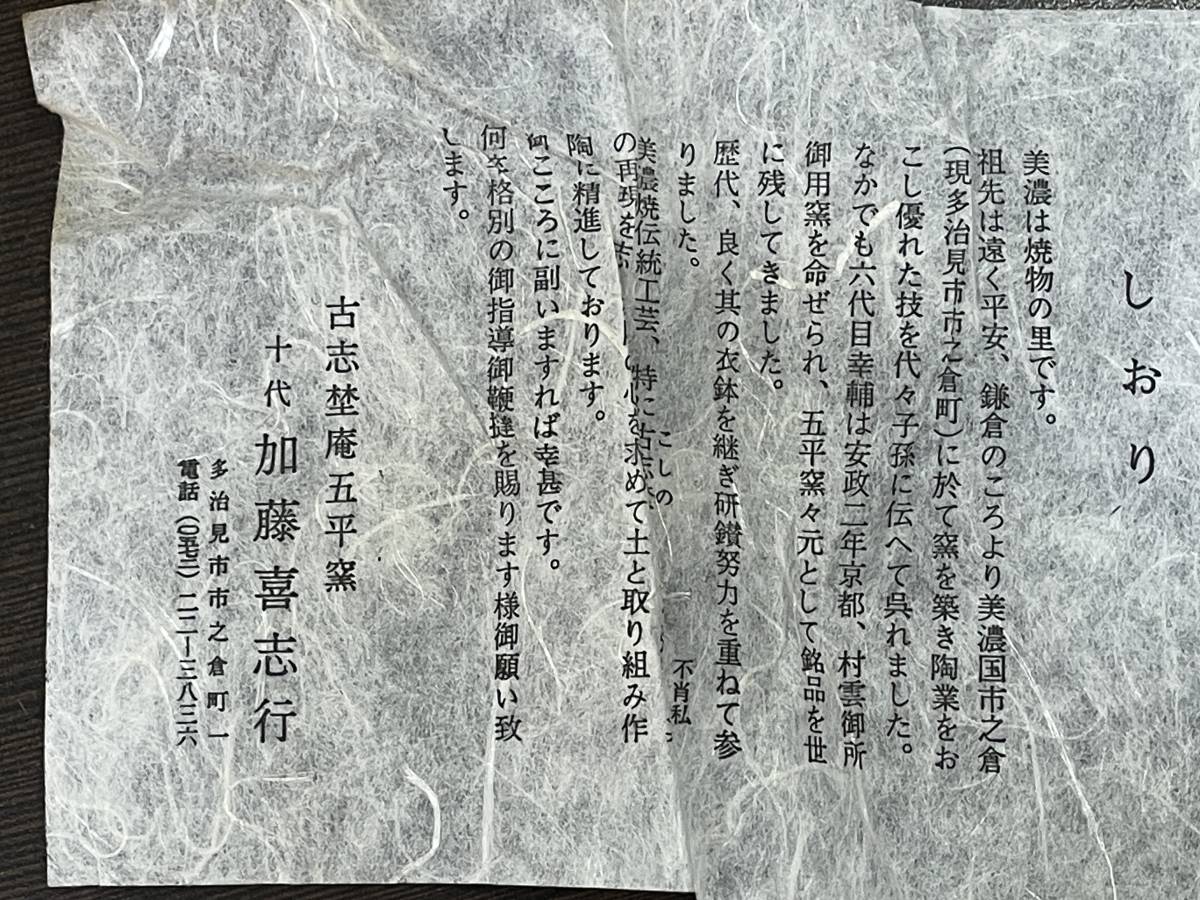 しおり
美濃は焼物の里です。
祖先は遠く平安、鎌倉のころより美濃国市之倉
(現多治見市市之倉町)に於て窯を築き陶業をお
こし優れた技を代々子孫に伝へて呉れました。
なかでも六代目幸輔は安政二年京都、村雲御所
御用窯を命ぜられ、五平窯々元として銘品を世
に残してきました。
歴代、良く其の衣鉢を継ぎ研鑚努力を重ねて参
りました。
不肖私
こしの
美濃焼伝統工芸、特に古志
の再現を志 心を求めて土と取り組み作
陶に精進しております。
こころに副いますれば幸甚です。
何卒格別の御指導御鞭撻を賜ります様御願い致
します。
古志埜庵五平窯
十代 加藤喜志行
多治見市市之倉町一
電話(〇五七二)二二ー三八三六